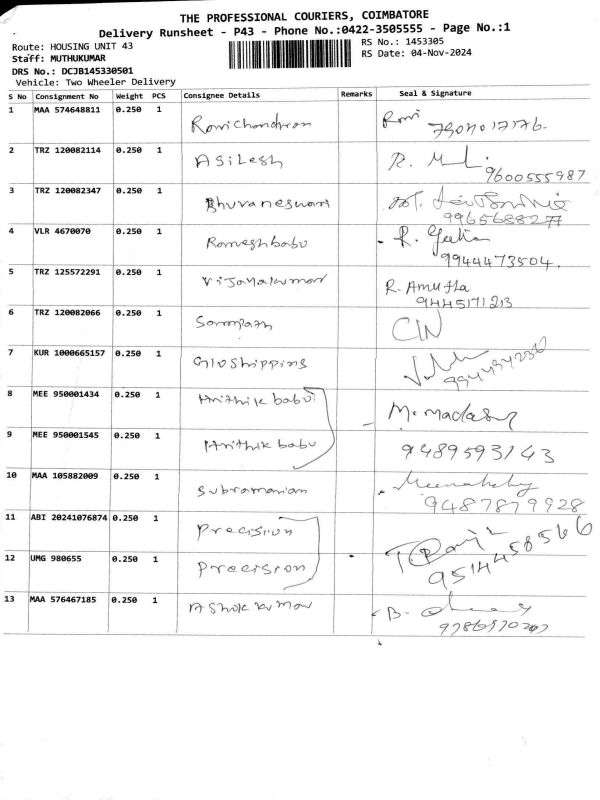 THE PROFESSIONAL COURIERS, COIMBATORE
Delivery Runsheet - P43 - Phone No.:0422-3505555 - Page No.:1
Route: HOUSING UNIT 43 RS No.: 1453305
Staff: MUTHUKUMAR RS Date: 04-Nov-2024
DRS No.: DCJB145330501
Vehicle: Two Wheeler Delivery
S No Consignment No Weight PCS Consignee Details Remarks Seal & Signature
1 MAA 574648811 0.250 1 Ravichandran Ravi
2 TRZ 120082114 0.250 1 Asilesh
9600555987
3 TRZ 120082347 0.250 1 Bhuvaneswari
9965688277
4 VLR 4670070 0.250 1 Rameshbabu R. Geetha
9944473504.
5 TRZ 125572291 0.250 1 Vijayakumar R. Amutha
9445171213
6 TRZ 120082066 0.250 1 Sampath
7 KUR 1000665157 0.250 1 Gloshipping
8 MEE 950001434 0.250 1 Hrithik babu M. Madasy
9 MEE 950001545 0.250 1 Hrithik babu 9489593143
10 MAA 105882009 0.250 1 Subramanian
9487879928
11 ABI 20241076874 0.250 1 Precision
12 UMG 980655 0.250 1 Precision 9514458566
13 MAA 576467185 0.250 1 Ashok kumar B.